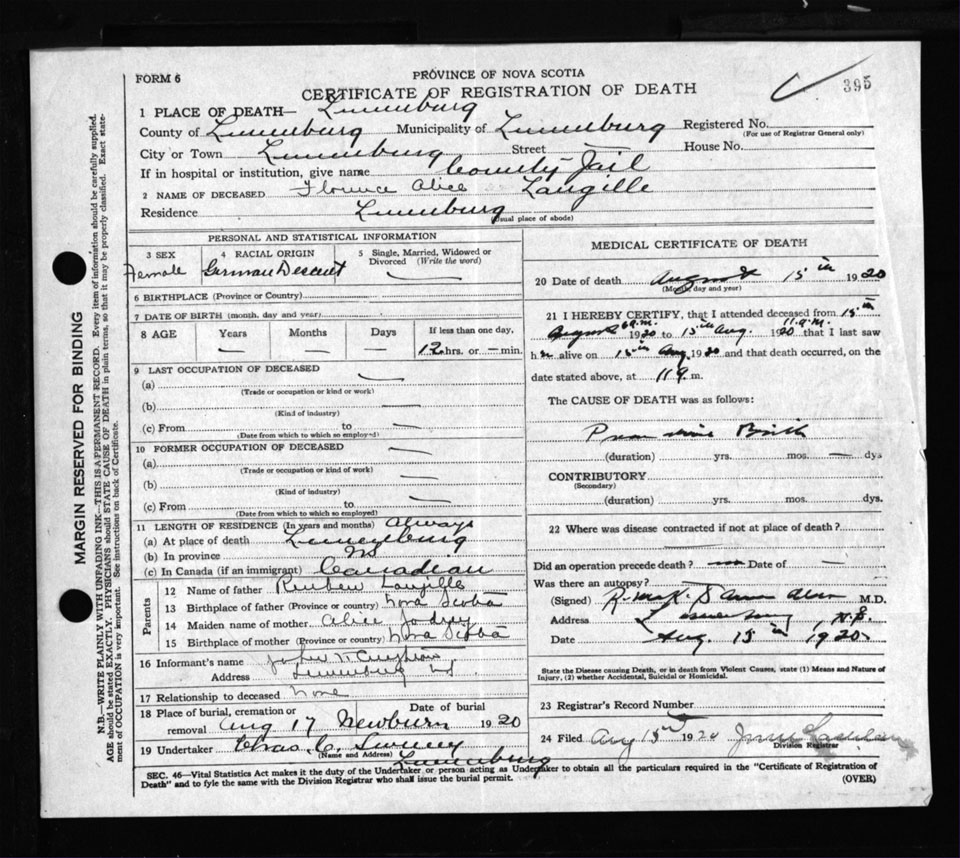 FORM 6
PROVINCE OF NOVA SCOTIA
CERTIFICATE OF REGISTRATION OF DEATH
395
1 PLACE OF DEATH— Lunenburg
County of Lunenburg Municipality of Lunenburg Registered No.
(For use of Registrar General only)
City or Town Lunenburg Street — House No.
If in hospital or institution, give name County Jail
2 NAME OF DECEASED Florence Alice Langille
Residence Lunenburg
(Usual place of abode)
PERSONAL AND STATISTICAL INFORMATION
3 SEX Female
4 RACIAL ORIGIN German Descent
5 Single, Married, Widowed or Divorced (Write the word) —
6 BIRTHPLACE (Province or Country)
7 DATE OF BIRTH (month, day and year)
8 AGE Years — Months — Days — If less than one day, 12 hrs. or — min.
9 LAST OCCUPATION OF DECEASED
(a) —
(Trade or occupation or kind or work)
(b) —
(Kind of industry)
(c) From to —
(Date from which to which so employed)
10 FORMER OCCUPATION OF DECEASED —
(a)
(Trade or occupation or kind of work)
(b) —
(Kind of industry)
(c) From to —
(Date from which to which so employed)
11 LENGTH OF RESIDENCE (In years and months) Always
(a) At place of death Lunenburg
(b) In province NS
(c) In Canada (if an immigrant) Canadian
Parents
12 Name of father Reuben Langille
13 Birthplace of father (Province or country) Nova Scotia
14 Maiden name of mother Alice
15 Birthplace of mother (Province or country) Nova Scotia
16 Informant's name
Address Lunenburg
17 Relationship to deceased None
18 Place of burial, cremation or removal Newburn Date of burial Aug 17 1920
19 Undertaker Chas. C.
(Name and Address) Lunenburg
MEDICAL CERTIFICATE OF DEATH
20 Date of death August 15th 1920
(Month, day and year)
21 I HEREBY CERTIFY, that I attended deceased from 15th
August 1920 to 15th Aug. 1920 and that I last saw
h alive on 15th Aug 1920 and that death occurred, on the
date stated above, at 11 a. m.
The CAUSE OF DEATH was as follows:
Premature Birth
(duration) yrs. mos. — dys
CONTRIBUTORY
(Secondary)
(duration) yrs. mos. dys.
22 Where was disease contracted if not at place of death?
Did an operation precede death? no Date of —
Was there an autopsy?
(Signed) M.D.
Address Lunenburg, N.S.
Date Aug. 15th 1920
State the Disease causing Death, or in death from Violent Causes, state (1) Means and Nature of
Injury, (2) whether Accidental, Suicidal or Homicidal.
23 Registrar's Record Number
24 Filed Aug 15 1920
Division Registrar
SEC. 46—Vital Statistics Act makes it the duty of the Undertaker or person acting as Undertaker to obtain all the particulars required in the "Certificate of Registration of
Death" and to fyle the same with the Division Registrar who shall issue the burial permit.
(OVER)
MARGIN RESERVED FOR BINDING
N.B.—WRITE PLAINLY WITH UNFADING INK—THIS IS A PERMANENT RECORD. Every item of information should be carefully supplied.
AGE should be stated EXACTLY. PHYSICIANS should STATE CAUSE OF DEATH in plain terms, so that it may be properly classified. Exact state-
ment of OCCUPATION is very important. See instructions on back of Certificate.